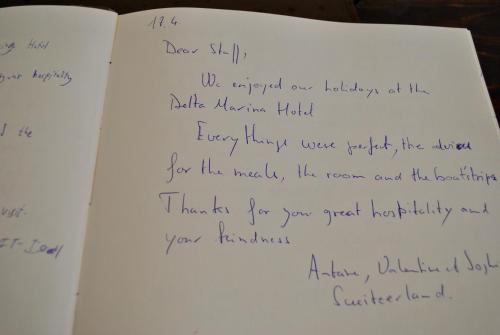 Hotel
your hospitality
the
visit.
17.4
Dear Staff,
We enjoyed our holidays at the
Delta Marina Hotel
Everythings were perfect, the advices
for the meals, the room and the boat'strips
Thanks for your great hospitality and
your kindness
Antane, Valentine et
Switeerland.